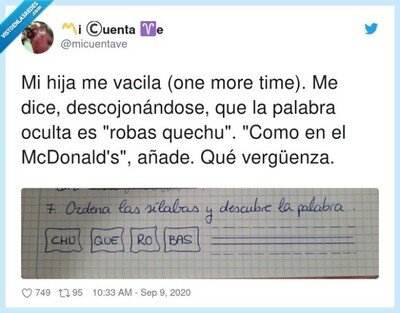 VISTOENLASREDES.COM
〽️i Ⓒuenta ♈e
@micuentave
Mi hija me vacila (one more time). Me
dice, descojonándose, que la palabra
oculta es "robas quechu". "Como en el
McDonald's", añade. Qué vergüenza.
7. Ordena las sílabas y descubre la palabra.
CHU QUE RO BAS
749 95 10:33 AM - Sep 9, 2020